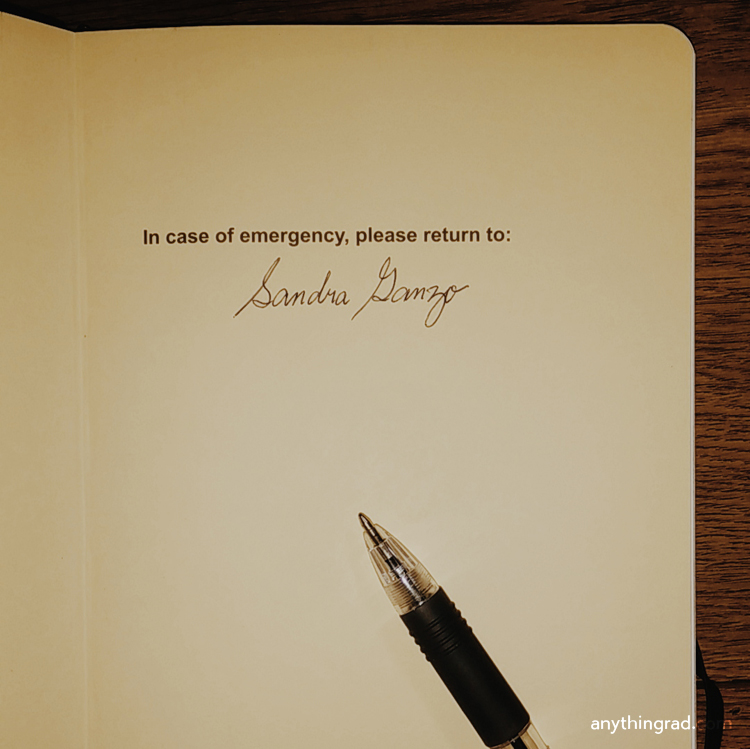 In case of emergency, please return to:
Sandra Ganzo
anythingrad.com